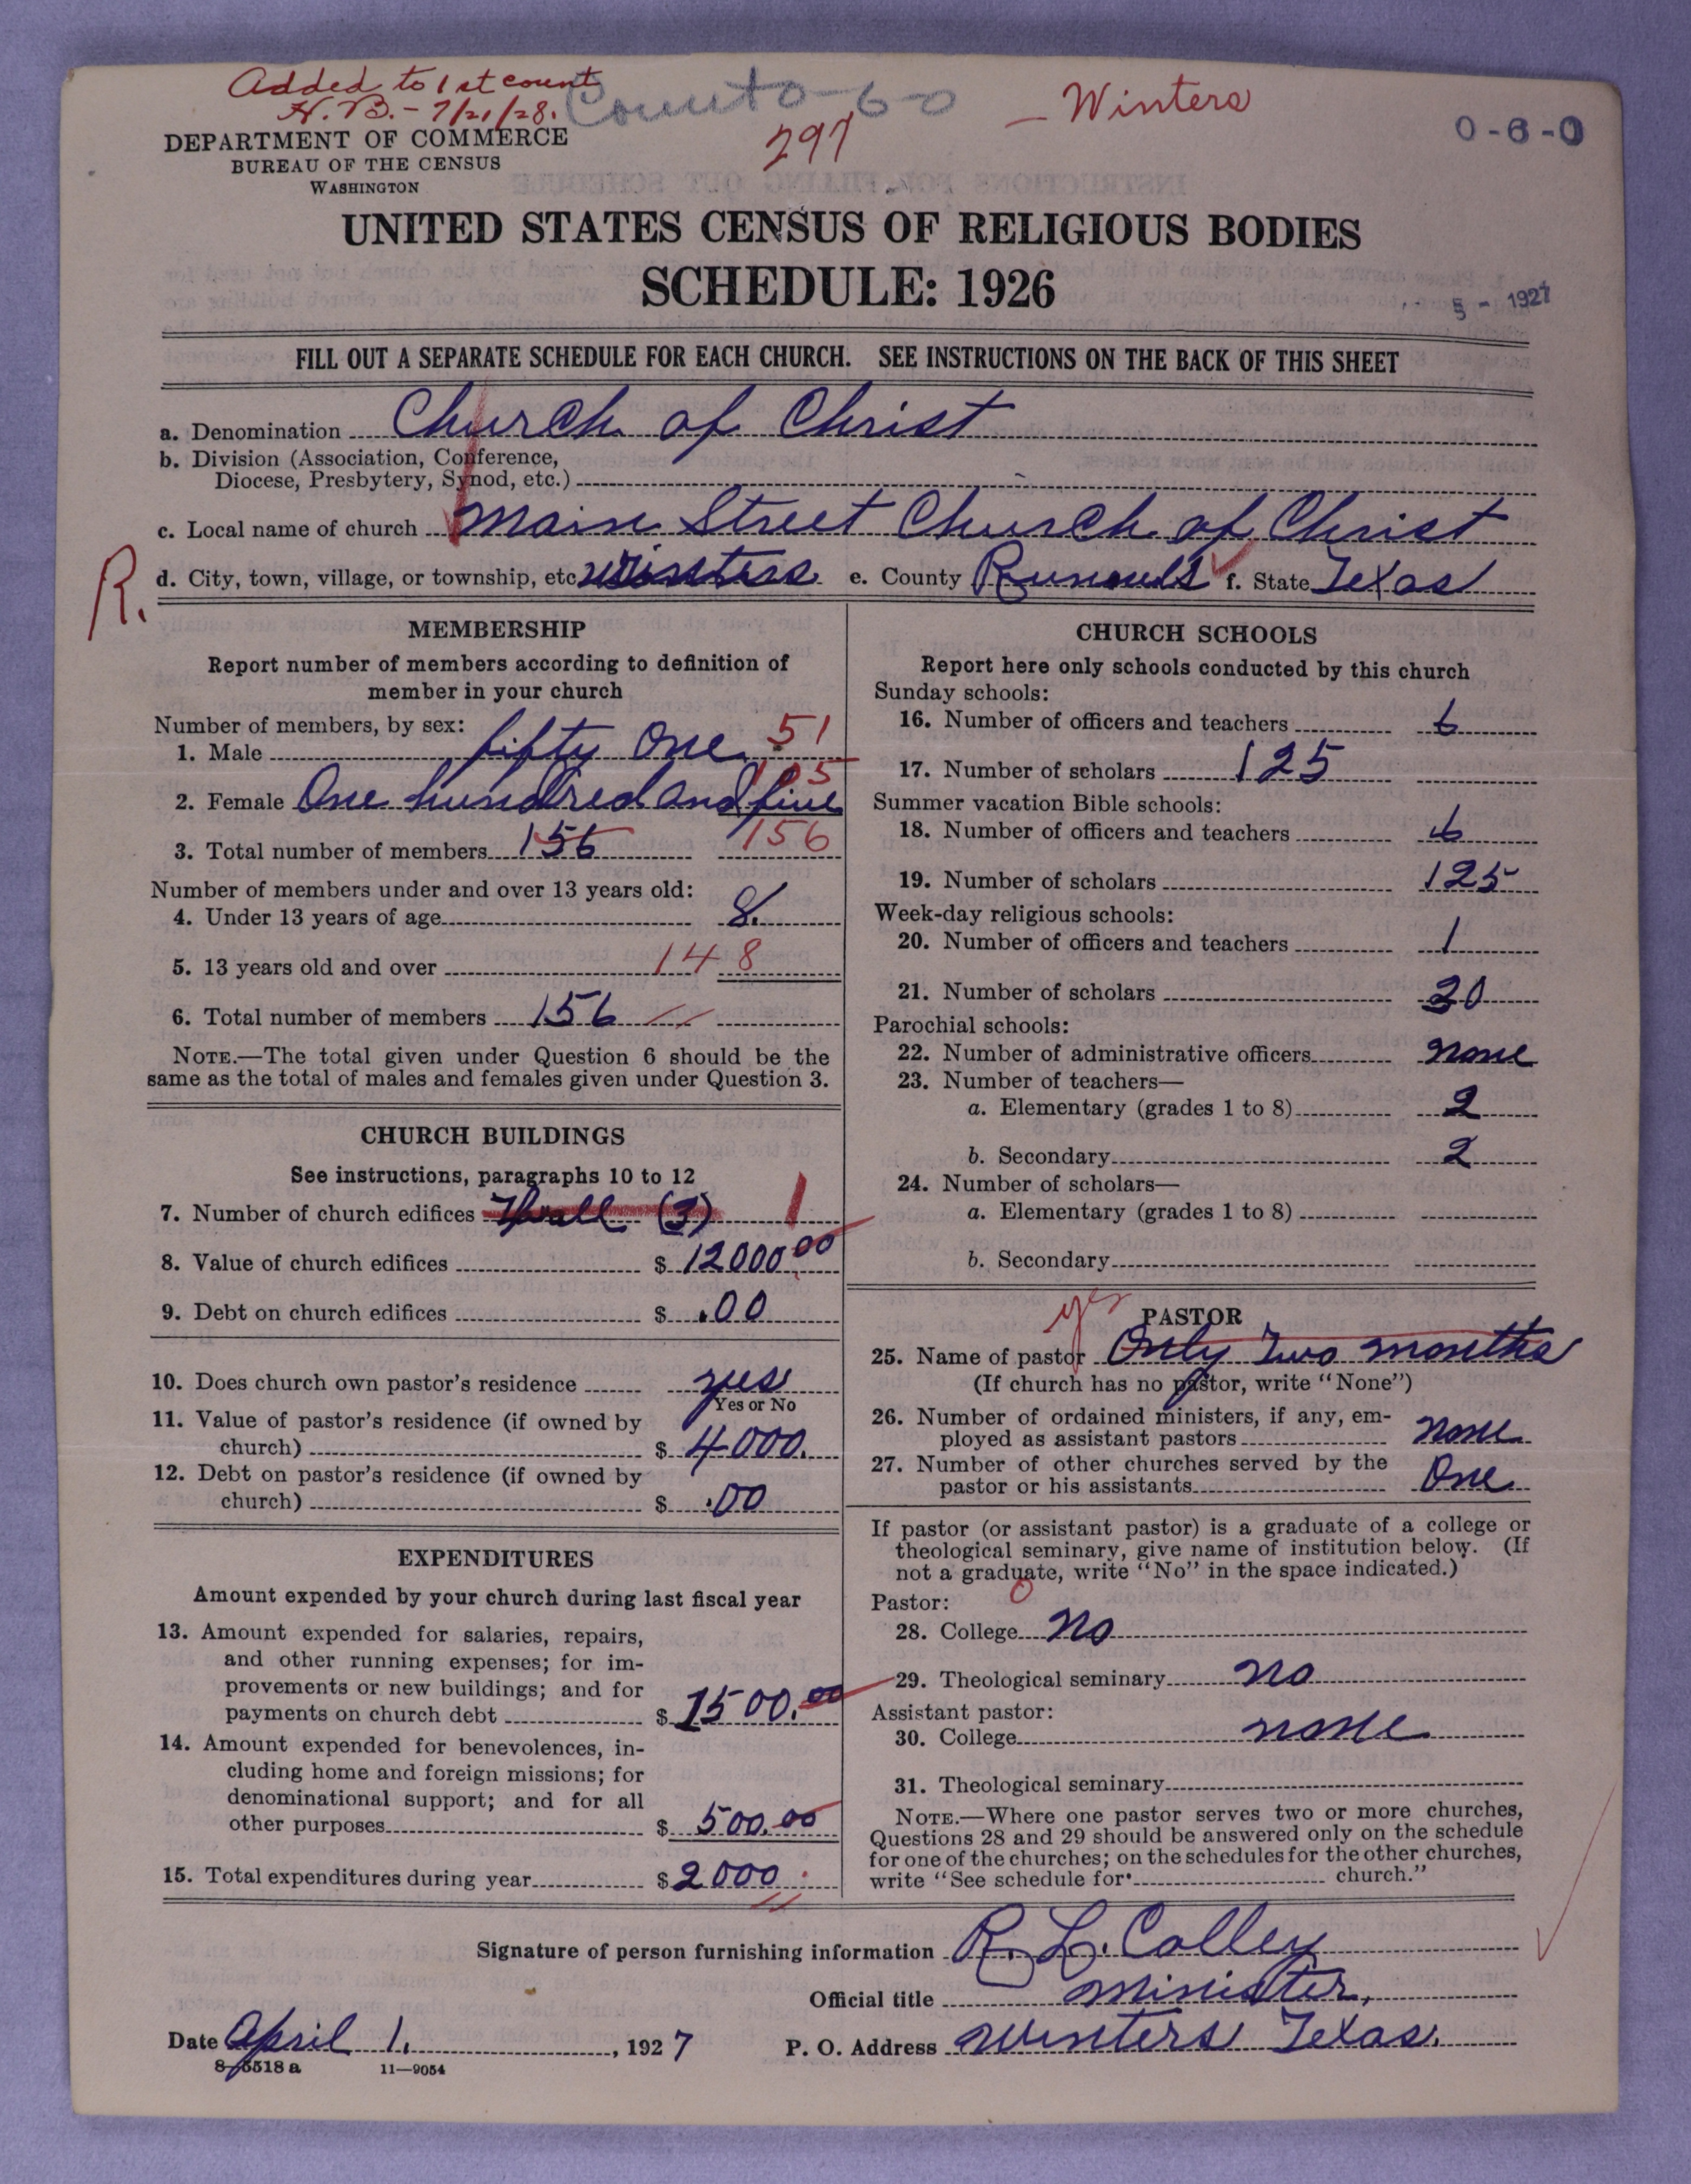 Added to 1st count
H. B. - 7/21/28.
Count 0-6-0
297
- Winters
0-6-0
DEPARTMENT OF COMMERCE
BUREAU OF THE CENSUS
WASHINGTON
UNITED STATES CENSUS OF RELIGIOUS BODIES
SCHEDULE: 1926
5 - 1927
FILL OUT A SEPARATE SCHEDULE FOR EACH CHURCH. SEE INSTRUCTIONS ON THE BACK OF THIS SHEET
a. Denomination Church of Christ
b. Division (Association, Conference,
Diocese, Presbytery, Synod, etc.)
c. Local name of church Main Street Church of Christ
R.
d. City, town, village, or township, etc. Winters e. County Runnels f. State Texas
MEMBERSHIP
Report number of members according to definition of
member in your church
Number of members, by sex:
1. Male fifty One 51
2. Female One hundred and five 105
3. Total number of members 156 156
Number of members under and over 13 years old:
4. Under 13 years of age 8.
5. 13 years old and over 148
6. Total number of members 156
NOTE.—The total given under Question 6 should be the
same as the total of males and females given under Question 3.
CHURCH BUILDINGS
See instructions, paragraphs 10 to 12
7. Number of church edifices (3) 1
8. Value of church edifices $ 12000.00
9. Debt on church edifices $ .00
10. Does church own pastor's residence yes
Yes or No
11. Value of pastor's residence (if owned by
church) $ 4000.
12. Debt on pastor's residence (if owned by
church) $ .00
EXPENDITURES
Amount expended by your church during last fiscal year
13. Amount expended for salaries, repairs,
and other running expenses; for im-
provements or new buildings; and for
payments on church debt $ 1500.00
14. Amount expended for benevolences, in-
cluding home and foreign missions; for
denominational support; and for all
other purposes $ 500.00
15. Total expenditures during year $ 2000
CHURCH SCHOOLS
Report here only schools conducted by this church
Sunday schools:
16. Number of officers and teachers 6
17. Number of scholars 125
Summer vacation Bible schools:
18. Number of officers and teachers 6
19. Number of scholars 125
Week-day religious schools:
20. Number of officers and teachers 1
21. Number of scholars 30
Parochial schools:
22. Number of administrative officers none
23. Number of teachers—
a. Elementary (grades 1 to 8) 2
b. Secondary 2
24. Number of scholars—
a. Elementary (grades 1 to 8)
b. Secondary
yes
PASTOR
25. Name of pastor Only Two months
(If church has no pastor, write "None")
26. Number of ordained ministers, if any, em-
ployed as assistant pastors none
27. Number of other churches served by the
pastor or his assistants One
If pastor (or assistant pastor) is a graduate of a college or
theological seminary, give name of institution below. (If
not a graduate, write "No" in the space indicated.)
0
Pastor:
28. College No
29. Theological seminary no
Assistant pastor:
30. College none
31. Theological seminary
NOTE.—Where one pastor serves two or more churches,
Questions 28 and 29 should be answered only on the schedule
for one of the churches; on the schedules for the other churches,
write "See schedule for church."
Signature of person furnishing information R. L. Colley
Official title minister,
Date April 1., 1927 P. O. Address Winters Texas.
8-5518 a 11—9054